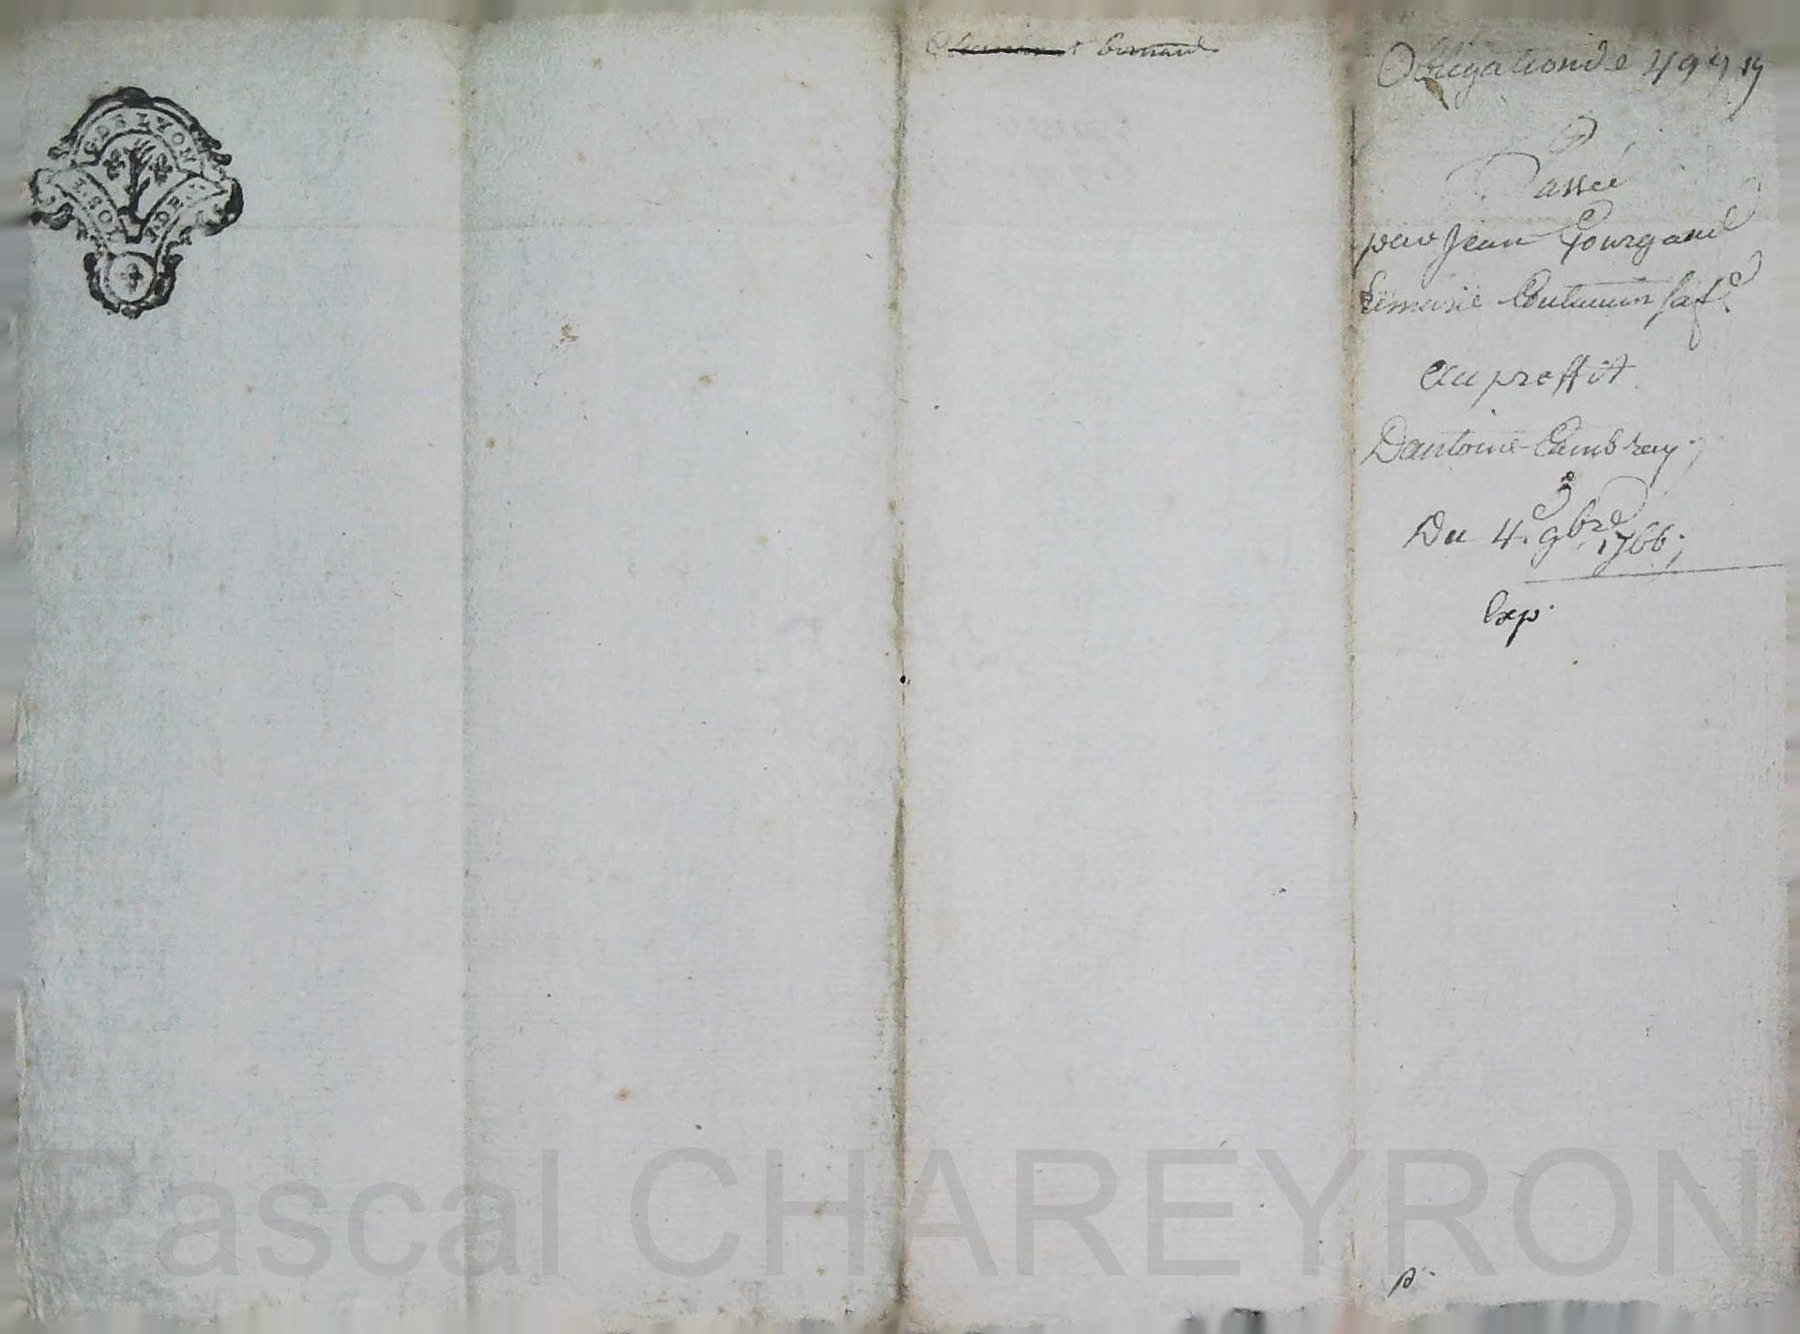 G. DE LYON
bernard
Obligation de 49
Passée
par Jean Gourgaud
Et marie Coulumin sa fe
Au proffit
Dantoine Cambray;
Du 4e. 9bre 1766;
Exp.
Pascal CHAREYRON